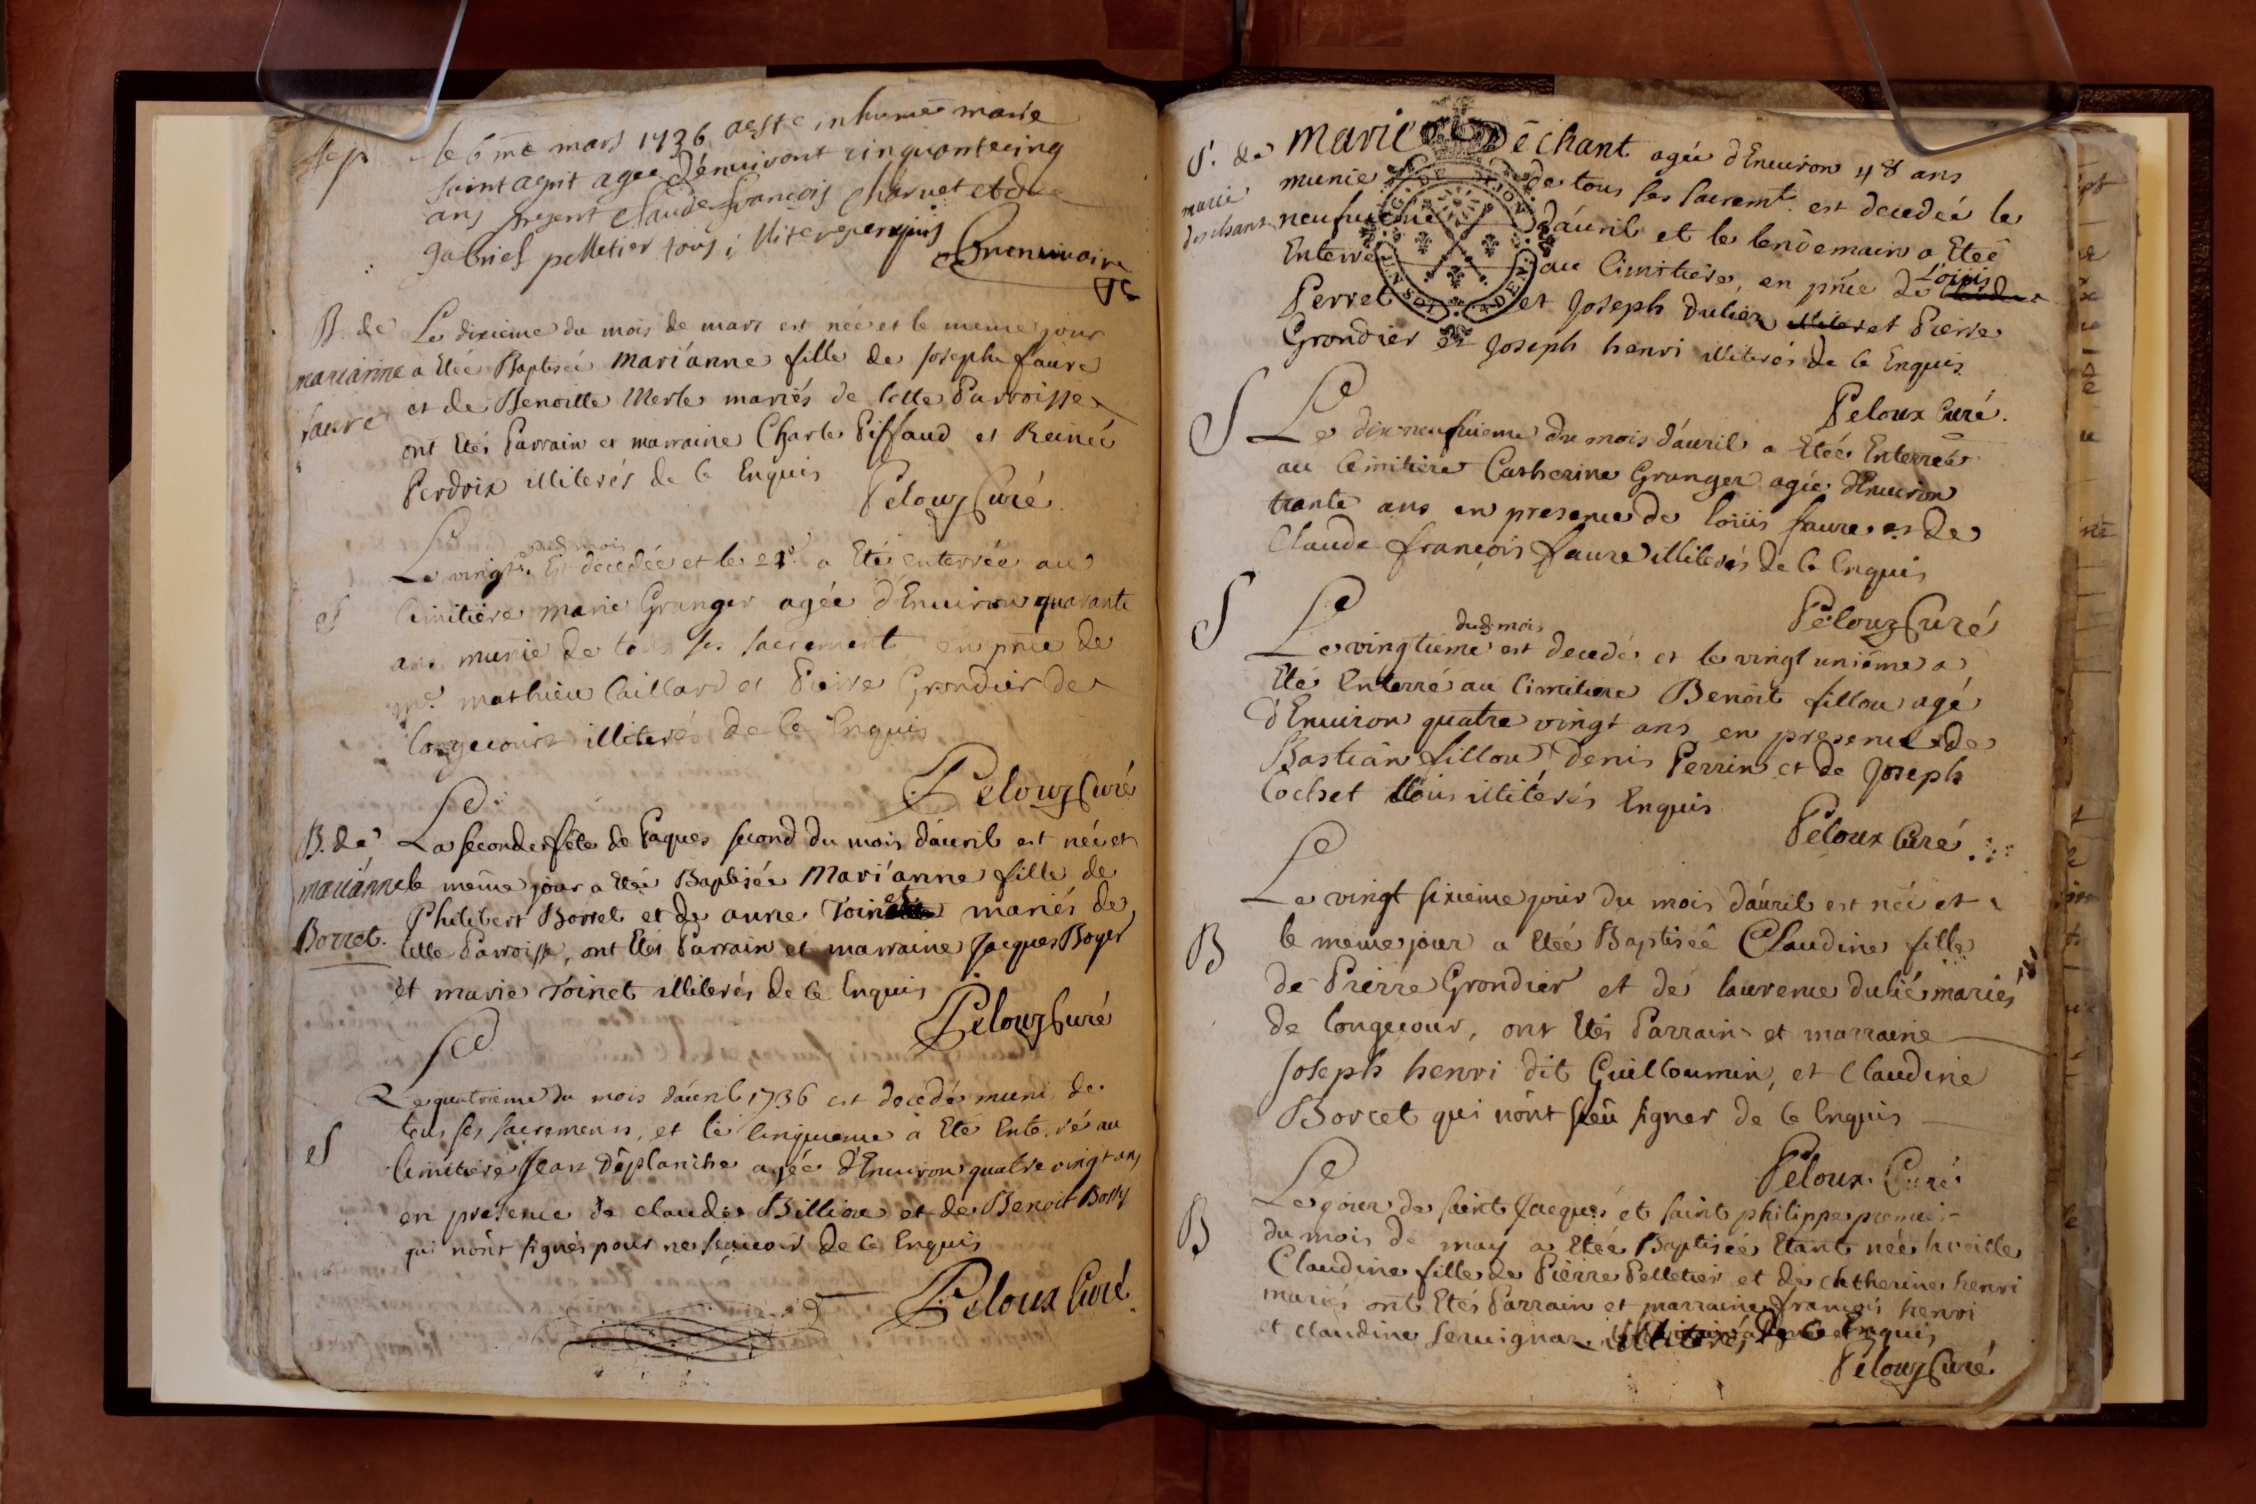 Sep
le 6 me mars 1736 aeste inhume marie
saint agnit agee d'enuiront cinquantecinq
ans present Claude françois charuet et de
gabriel pelletier tous illiteres enquis
B. de
marianne
faure
Le dixieme du mois de mars est née et le meme jour
a Etée Baptisée marianne fille de Joseph faure
et de Benoitte Merle mariés de cette Parroisse
ont Etés Parrain et marraine Charle Piffaud et Reinée
Perdrix illiterés de ce Enquis
Pelouz Curé
dud. mois
Le vingt. Est decedée et le 21e a Eté enterrée au
S
Cimitiere marie Granger agée d'Enuiron quarante
ans munie de tous ses sacrement, en pñce de
me. mathieu Caillard et Pierre Grondier de
longecourt illiterés de ce Enquis
Pelouz Curé
B. de
marianne
Borret.
La seconde fête de Paques second du mois d'auril est née et
le meme jour a Etée Baptisée Mari'anne fille de
Philibert Borret et de anne Toinet mariés de
cette Parroisse, ont Etés Parrain et marraine Jacques Boyer
et marie Toinet illiterés de ce Enquis
Pelouz Curé
Le quatrieme du mois d'auril 1736 est decedé muni de
S
tous ses sacremens, et le cinquieme a Eté Enterré au
Cimitiere Jean Déplanche agée d'Enuiron quatre vingt ans
en presence de claude Billion et de Benoit Bossy
qui n'ont signés pour ne sçauoir de ce Enquis
Peloux Curé
S. de
marie
deschant
Marie Dêchant agée d'Enuiron 48 ans
munie de tous ses sacremt. est decedée le
neufuieme d'auril et le lendemain a Etée
Enterrée au Cimitiere, en pñce de Loüis
Perret et Joseph Dulier et Pierre
Grondier et Joseph henri illiterés de ce Enquis
Peloux Curé.
S
Le dix neufuieme du mois d'auril a Etée Enterrée
au Cimitiere Catherine Granger agée d'Enuiron
trante ans en presence de loüis faure et de
Claude françois faure illiterés de ce Enquis
Pelouz Curé
S
dud. mois
Le vingtieme est decedé et le vingt unième a
Eté Enterré au Cimitiere Benoit fillou agé
d'Enuiron quatre vingt ans en presence de
Bastian fillou Denis Perrin et de Joseph
Cochet tous illitérés Enquis
Peloux Curé
Le vingt sixieme jour du mois d'auril est née et
B
le meme jour a Etée Baptisée Claudine fille
de Pierre Grondier et de laurence dulié mariés
de longecour, ont Etés Parrain et marraine
Joseph henri dit Guilloumin, et Claudine
Borcet qui n'ont sçeû signer de ce Enquis
Peloux Curé
B
Le jour de saint Jacques et saint philippe premier
du mois de may a Etée Baptisée Etant née la veille
Claudine fille de Pierre Pelletier et de Catherine henri
mariés ont Etés Parrain et marraine françois henri
et claudine seruignar illiterés De ce Enquis
Pelouz Curé